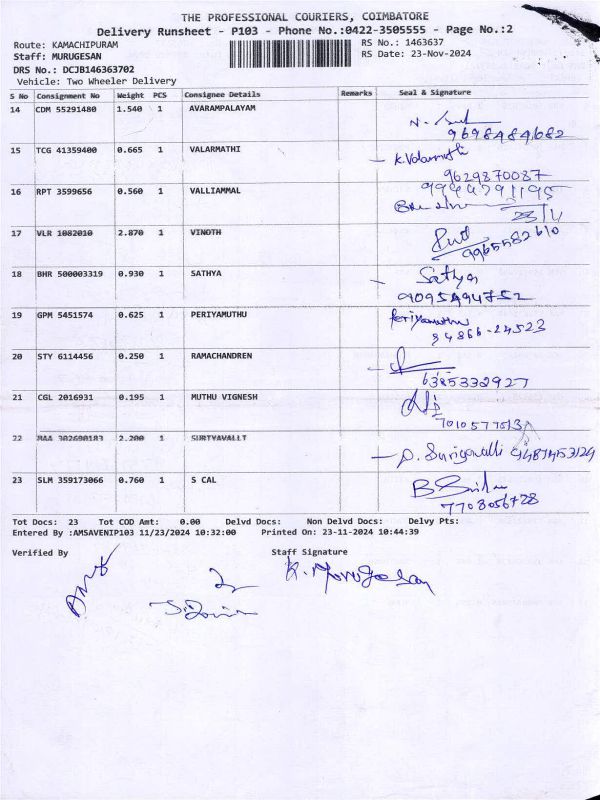 THE PROFESSIONAL COURIERS, COIMBATORE
Delivery Runsheet - P103 - Phone No.:0422-3505555 - Page No.:2
Route: KAMACHIPURAM RS No.: 1463637
Staff: MURUGESAN RS Date: 23-Nov-2024
DRS No.: DCJB146363702
Vehicle: Two Wheeler Delivery
S No Consignment No Weight PCS Consignee Details Remarks Seal & Signature
14 CDM 55291480 1.540 1 AVARAMPALAYAM
9698484682
15 TCG 41359400 0.665 1 VALARMATHI K.Valarmathi
9629870087
16 RPT 3599656 0.560 1 VALLIAMMAL 9994791195
23/4
17 VLR 1082010 2.870 1 VINOTH
9965582610
18 BHR 500003319 0.930 1 SATHYA Sathya
9095494752
19 GPM 5451574 0.625 1 PERIYAMUTHU Periyamuthu
94866-24523
20 STY 6114456 0.250 1 RAMACHANDREN
6385332927
21 CGL 2016931 0.195 1 MUTHU VIGNESH
22 MAA 302690183 2.200 1 SURIYAVALLI
23 SLM 359173066 0.760 1 S CAL
7708056728
Tot Docs: 23 Tot COD Amt: 0.00 Delvd Docs: Non Delvd Docs: Delvy Pts:
Entered By :AMSAVENIP103 11/23/2024 10:32:00 Printed On: 23-11-2024 10:44:39
Verified By Staff Signature
K. Murugesan